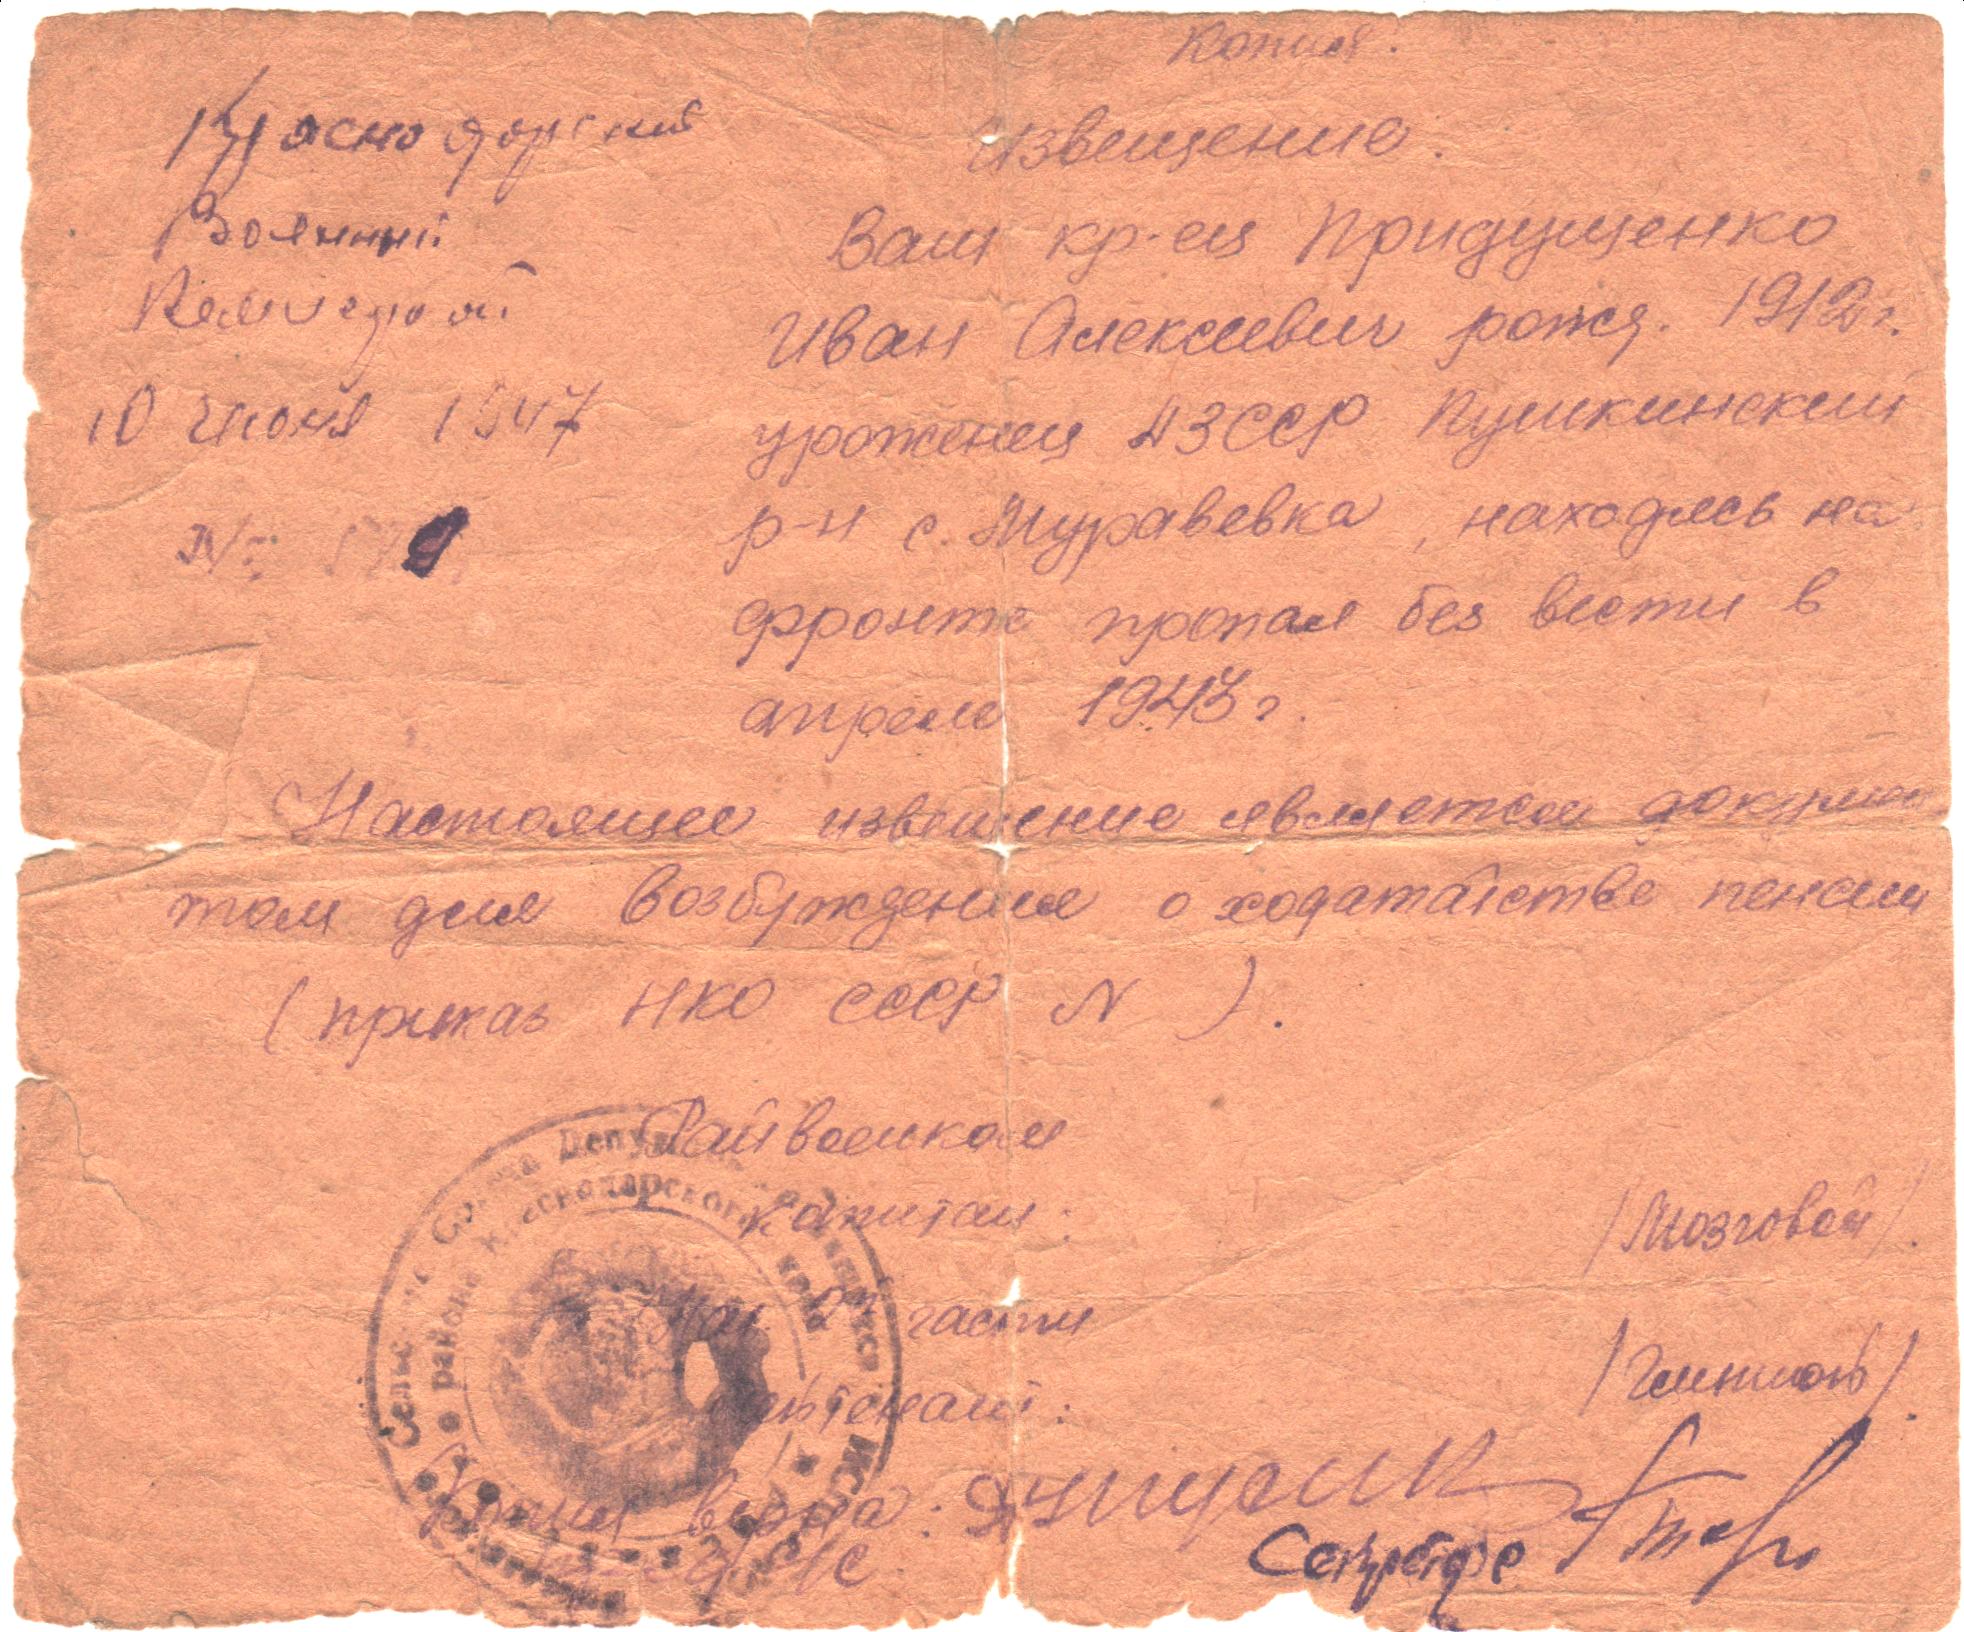 Копия.
Краснодарский
Военный
Комисариат
10 июня 1947
№
Извещение.
Ваш кр-ец Придущенко
Иван Алексеевич рожд. 1912 г.
уроженец АЗССР Пушкинский
р-н с. Журавевка, находясь на
фронте пропал без вести в
апреле 1943 г.
Настоящее извещение является докумен
том для возбуждения о ходатайстве пенсии
(приказ НКО СССР N ).
Райвоенком
капитан.
/Мозговой/.
Нач 2й части
лейтенант.
Копия верна:
Секретарь
Депутатов
Краснодарского края
района